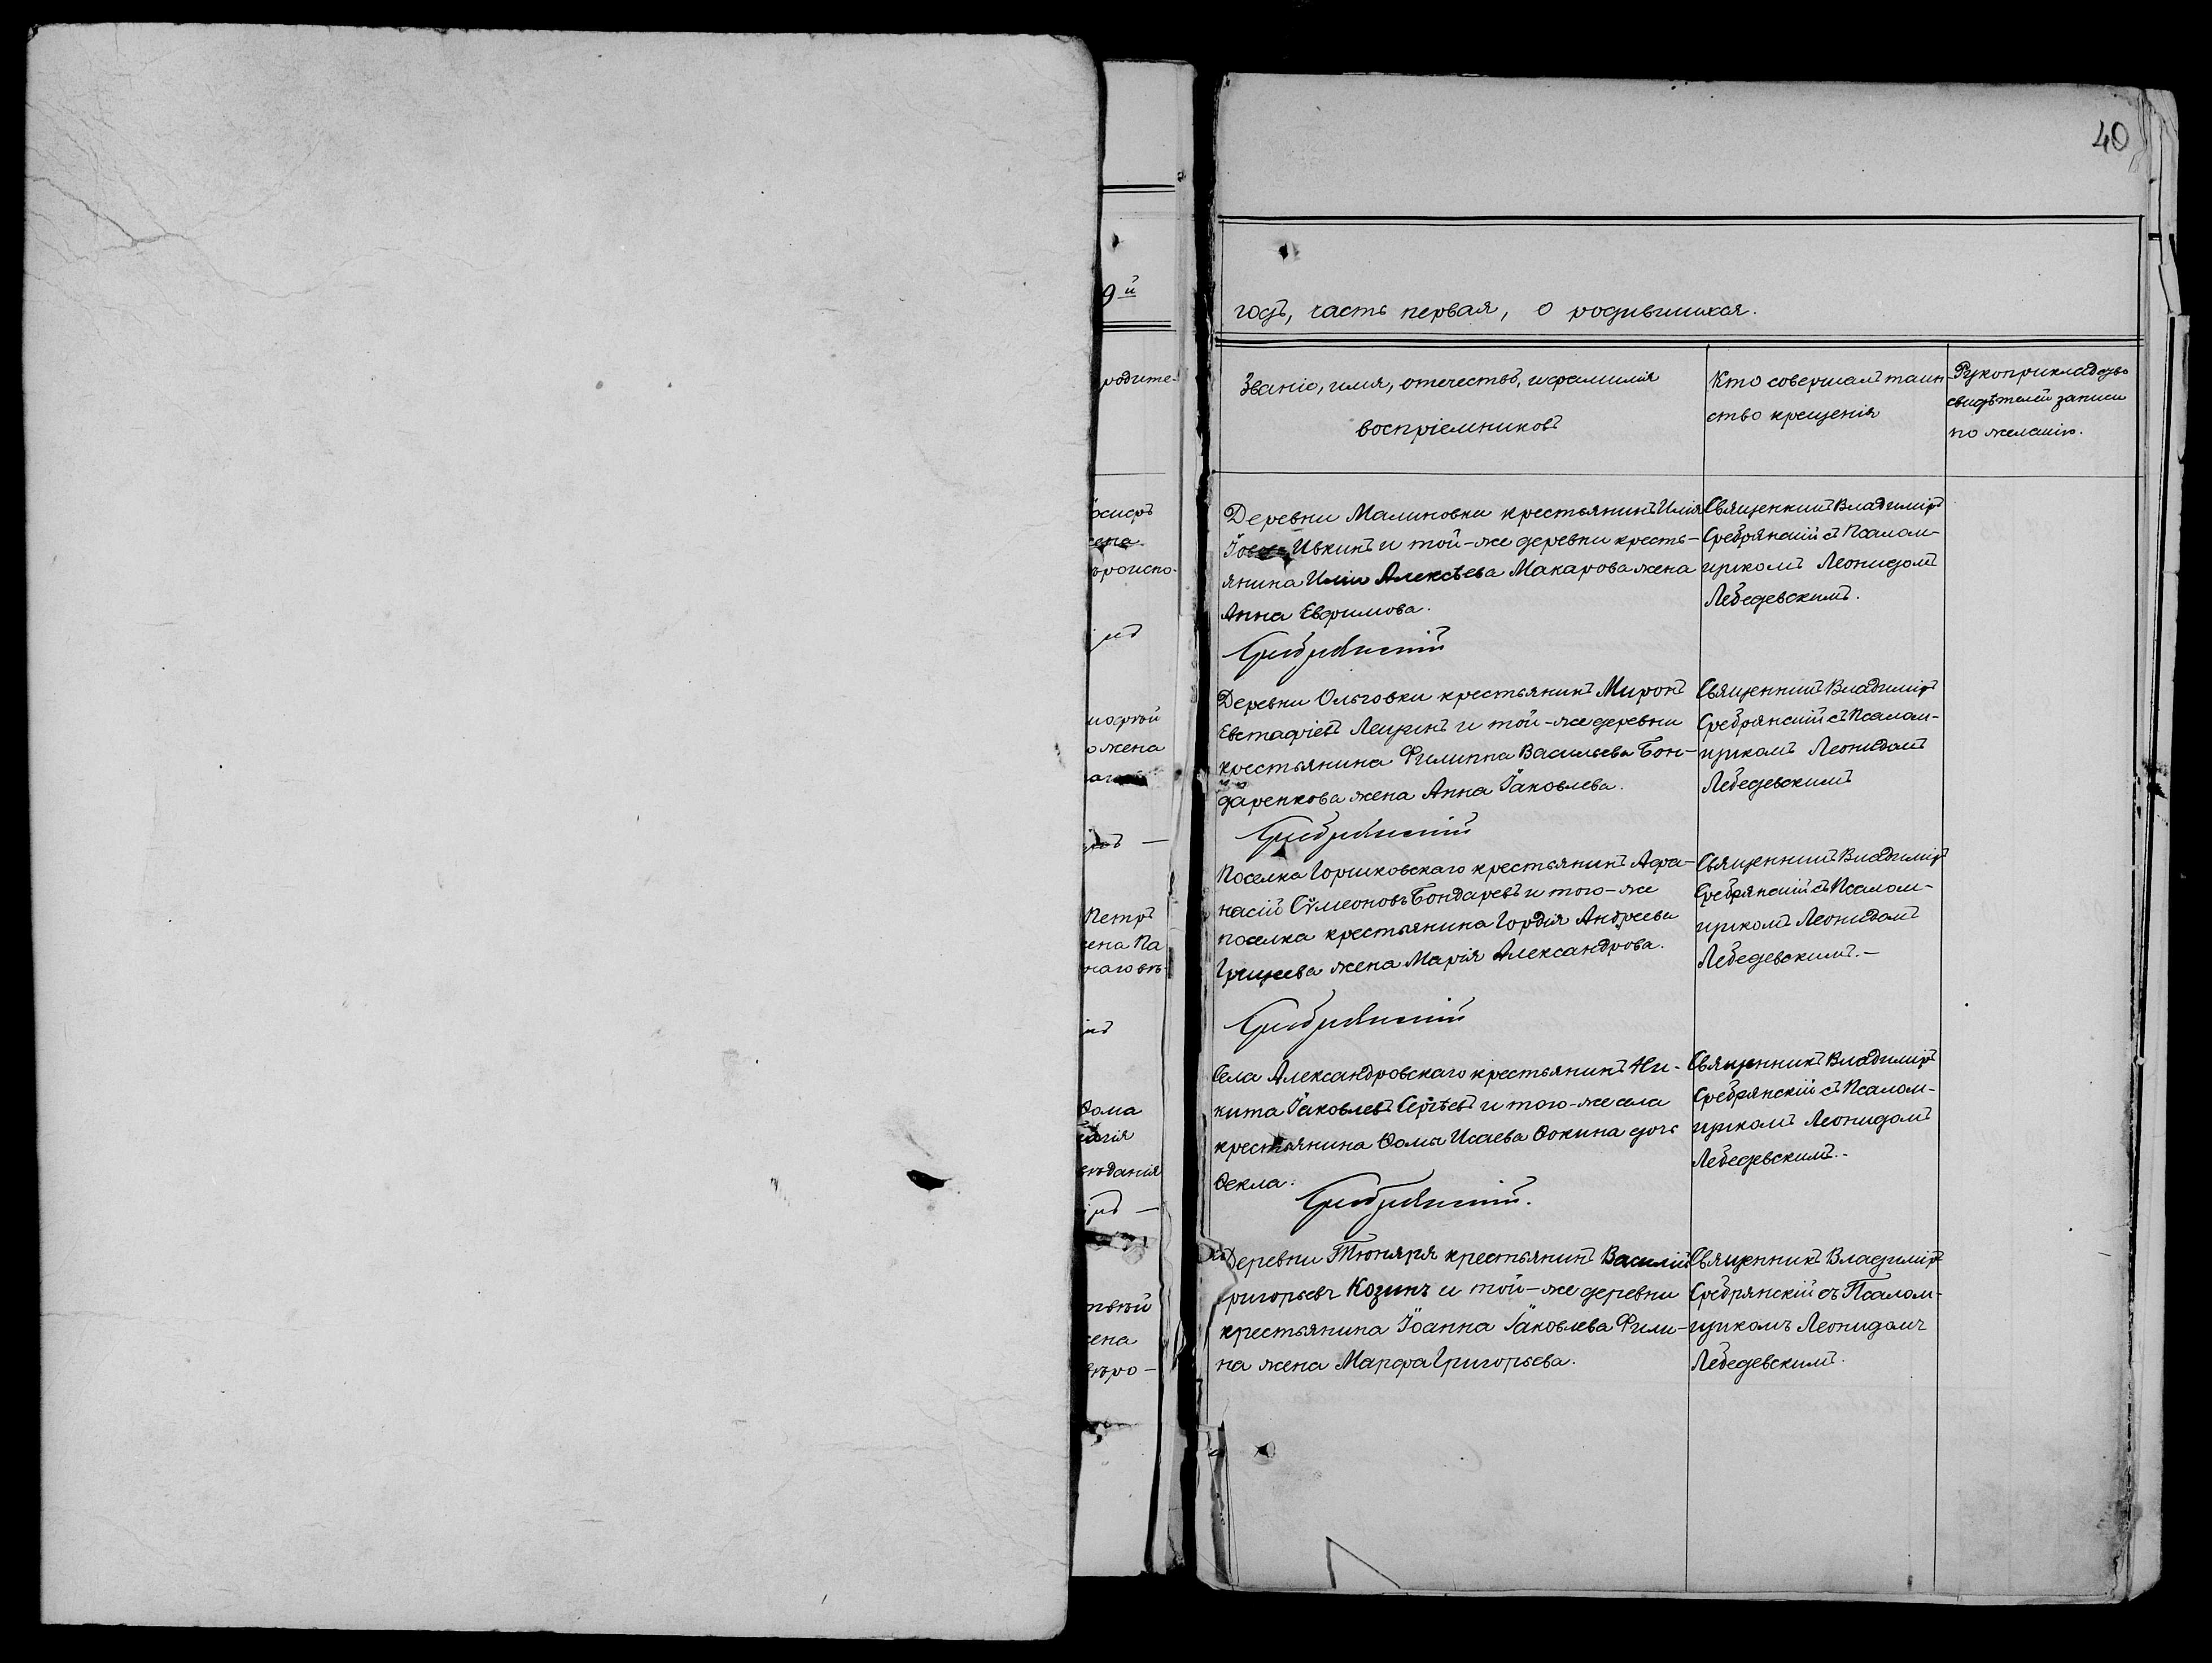 40
9й
годъ, часть первая, о родившихся.
родите-
Званіе, имя, отечество, и фамилія
воспріемниковъ
Кто совершалъ таин
ство крещенія
Рукоприкладство
свидѣтелей записи
по желанію.
осифъ
роиспо-
Деревни Малиновки крестьянинъ Илія
Ивкинъ и той-же деревни кресть-
янина Иліи Алексѣева Макарова жена
Анна Евфимова.
Сребрянскій
Священникъ Владиміръ
Сребрянскій съ Псалом-
щикомъ Леонидомъ
Лебедевскимъ.
жена
Деревни Ольговки крестьянинъ Миронъ
Евстафіевъ Лещинъ и той-же деревни
крестьянина Филиппа Васильева Бон-
даренкова жена Анна Іаковлева.
Сребрянскій
Священникъ Владиміръ
Сребрянскій съ Псалом-
щикомъ Леонидомъ
Лебедевскимъ
Петръ
ена Па
наго вѣ-
Поселка Горшковскаго крестьянинъ Афа-
насій Сѵмеоновъ Бондаревъ и того-же
поселка крестьянина Гордія Андреева
Грищева жена Марія Александрова.
Сребрянскій
Священникъ Владиміръ
Сребрянскій съ Псалом-
щикомъ Леонидомъ
Лебедевскимъ.-
Ѳома
вѣданія
Села Александровскаго крестьянинъ Ни-
кита Іаковлевъ Сергѣевъ и того-же села
крестьянина Ѳомы Исаева Ѳокина дочь
Ѳекла.
Сребрянскій.
Священникъ Владиміръ
Сребрянскій съ Псалом-
щикомъ Леонидомъ
Лебедевскимъ.-
ена
вѣро-
Деревни Тюняря крестьянинъ Василій
Григорьевъ Козинъ и той-же деревни
крестьянина Іоанна Іаковлева Фили-
на жена Марфа Григорьева.
Священникъ Владиміръ
Сребрянскій съ Псалом-
щикомъ Леонидомъ
Лебедевскимъ.